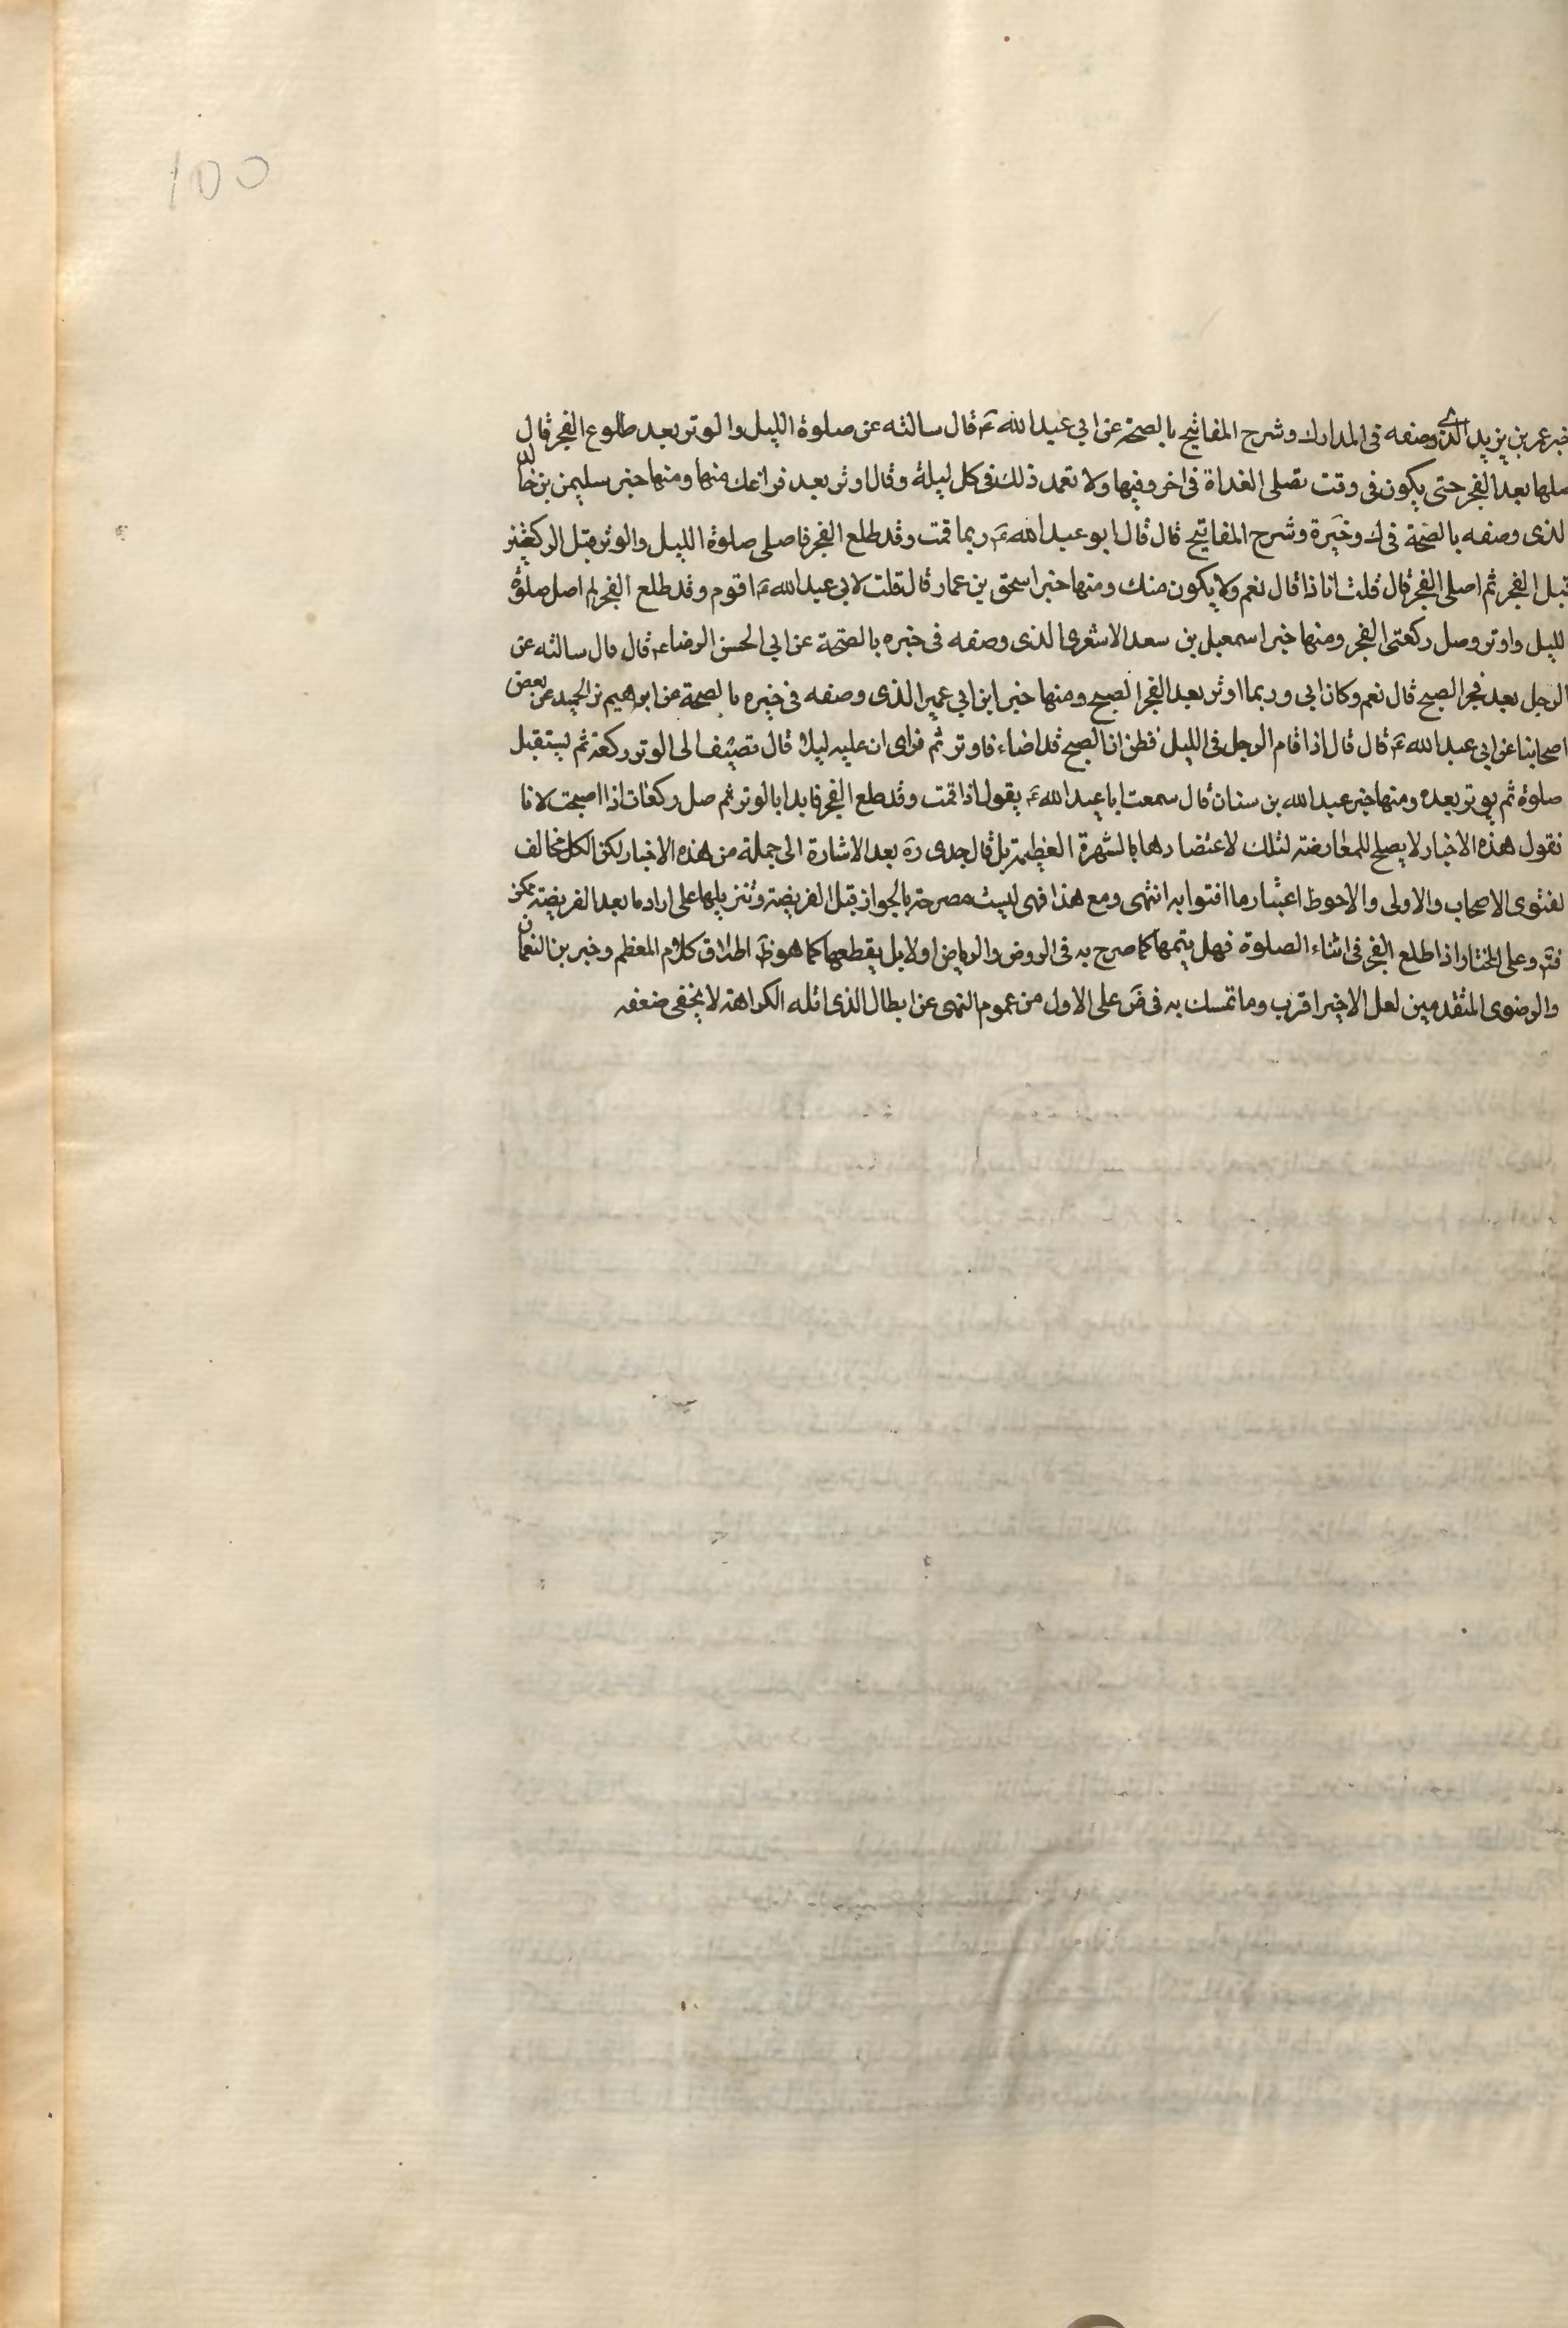 100
خبر عمر بن يزيد الذى وصفه فى المدارك وشرح المفاتيح بالصحة عن ابى عبد الله ع قال سالته عن صلوة الليل والوتر بعد طلوع الفجر قال
صلها بعد الفجر حتى يكون فى وقت تصلى الغداة فى اخر وقتها ولا تعمد ذلك فى كل ليلة وقال اوتر بعد فراغك منها ومنها خبر سليمن بن خالد
لذى وصفه بالصحة فى ك وخيرة وشرح المفاتيح قال قال ابو عبد الله ع ربما قمت وقد طلع الفجر فاصلى صلوة الليل والوتر قبل الركعتين
قبل الفجر ثم اصلى الفجر قال قلت انا ذا قال نعم ولا يكون منك ومنها خبر اسمحق بن عمار قال قلت لابى عبد الله ع اقوم وقد طلع الفجر لم اصل صلوة
لليل واوتر وصل ركعتى الفجر ومنها خبر اسمعيل بن سعد الاشعرى الذى وصفه فى خيره بالصحة عن ابى الحسن الرضاء ع قال قال سالته عن
الرجل بعد فجر الصبح قال نعم وكان ابى وربما اوتر بعد الفجر الصبح ومنها خبر ابن ابى عمير الذى وصفه فى خيره بالصحة عن ابرهيم بن الحميد عن بعض
اصحابنا عن ابى عبد الله ع قال قال اذا قام الرجل فى الليل فظن ان الصبح قد اضاء فاوتر ثم فراى ان عليه ليلا قال تصيف الى الوتر ركعة ثم ليستقبل
صلوة ثم يوتر بعده ومنها خبر عبد الله بن سنان قال سمعت ابا عبد الله ع يقول اذا قمت وقد طلع الفجر فابدا بالوتر ثم صل ركعات اذا اصبحت لانا
نقول هذه الاخبار لا يصلح للمعارضة لتلك لاعتضادها بالشهرة العظيمة بل قال جدى ره بعد الاشارة الى جملة من هذه الاخبار لكن الكل مخالف
لفتوى الاصحاب والاولى والاحوط اعتبار ما افتوا به انتهى ومع هذا فهى ليست مصرحة بالجواز قبل الفريضة وتنزيلها على اراد ما بعد الفريضة ممكن
فتم وعلى المختار اذا طلع الفجر فى اثناء الصلوة فهل يتمها كما صرح به فى الروض والرياض او لا بل يقطعها كما هو ظ اطلاق كلام المعظم وخبر بن النعمان
والرضوى المتقدمين لعل الاخير اقرب وما تمسك به فى ض على الاول من عموم النهى عن ابطال الذى اقله الكراهة لا يخفى ضعفه